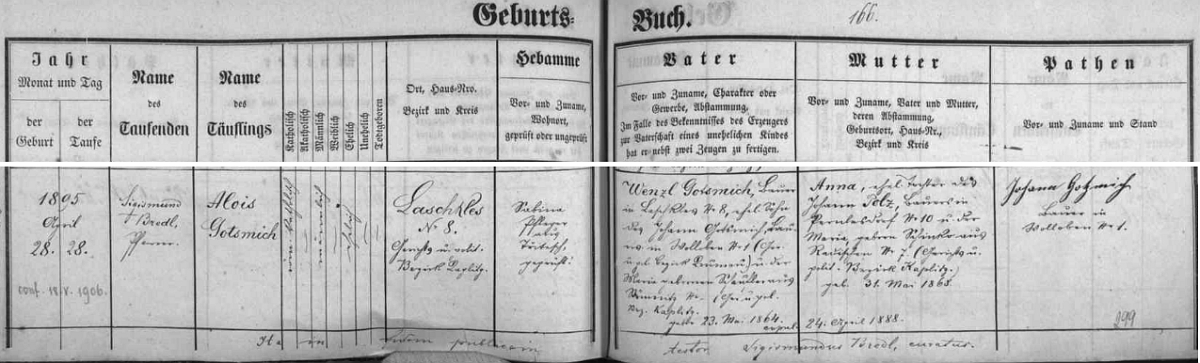 Geburts-
Buch.
166.
Jahr
Monat und Tag
der
Geburt
der
Taufe
Name
des
Taufenden
Name
des
Täuflings
Katholisch
Akatholisch
Männlich
Weiblich
Ehelich
Unehelich
Todtgeboren
Ort, Haus-Nro.
Bezirk und Kreis
Hebamme
Vor- und Zuname,
Wohnort,
geprüft oder ungeprüft
Vater
Vor- und Zuname, Charakter oder
Gewerbe, Abstammung,
Im Falle des Bekenntnisses des Erzeugers
zur Vaterschaft eines unehelichen Kindes
hat er nebst zwei Zeugen zu fertigen.
Mutter
Vor- und Zuname, Vater und Mutter,
deren Abstammung,
Geburtsort, Haus-Nr.,
Bezirk und Kreis
Pathen
Vor- und Zuname und Stand
1895
April
28. 28.
conf. 18/V. 1906.
Sigismund
Bredl,
Pfarrer.
Alois
Gotsmich
katholisch
männlich
ehelich
Laschkles
N 8.
Gerichts u. polit.
Bezirk Kaplitz.
Sabina
geprüft.
Wenzl Gotsmich, Bauer
in Laschkles N 8, ehel. Sohn
des Johann Gotsmich, Bau-
ers in Wolleben N 1 (Ger.
u. pol. Bezirk Krumau) u. der
Maria gebornen Schuller aus
(Ger. u. pol.
Bez. Kaplitz.
geb. 23. Mai 1864.
copul. 24. April 1888.
Anna, ehel. Tochter des
Johann Tolz, Bauers in
Pernlesdorf N 10 u. der
Maria, gebor. Schinko aus
N 7 (Gerichts u.
polit. Bezirk Kaplitz.)
geb. 31. Mai 1868.
Johann Gotsmich
Bauer in
Wolleben N 1.
299
Ita in fidem publicam
testor Sigismundus Bredl, curatus.